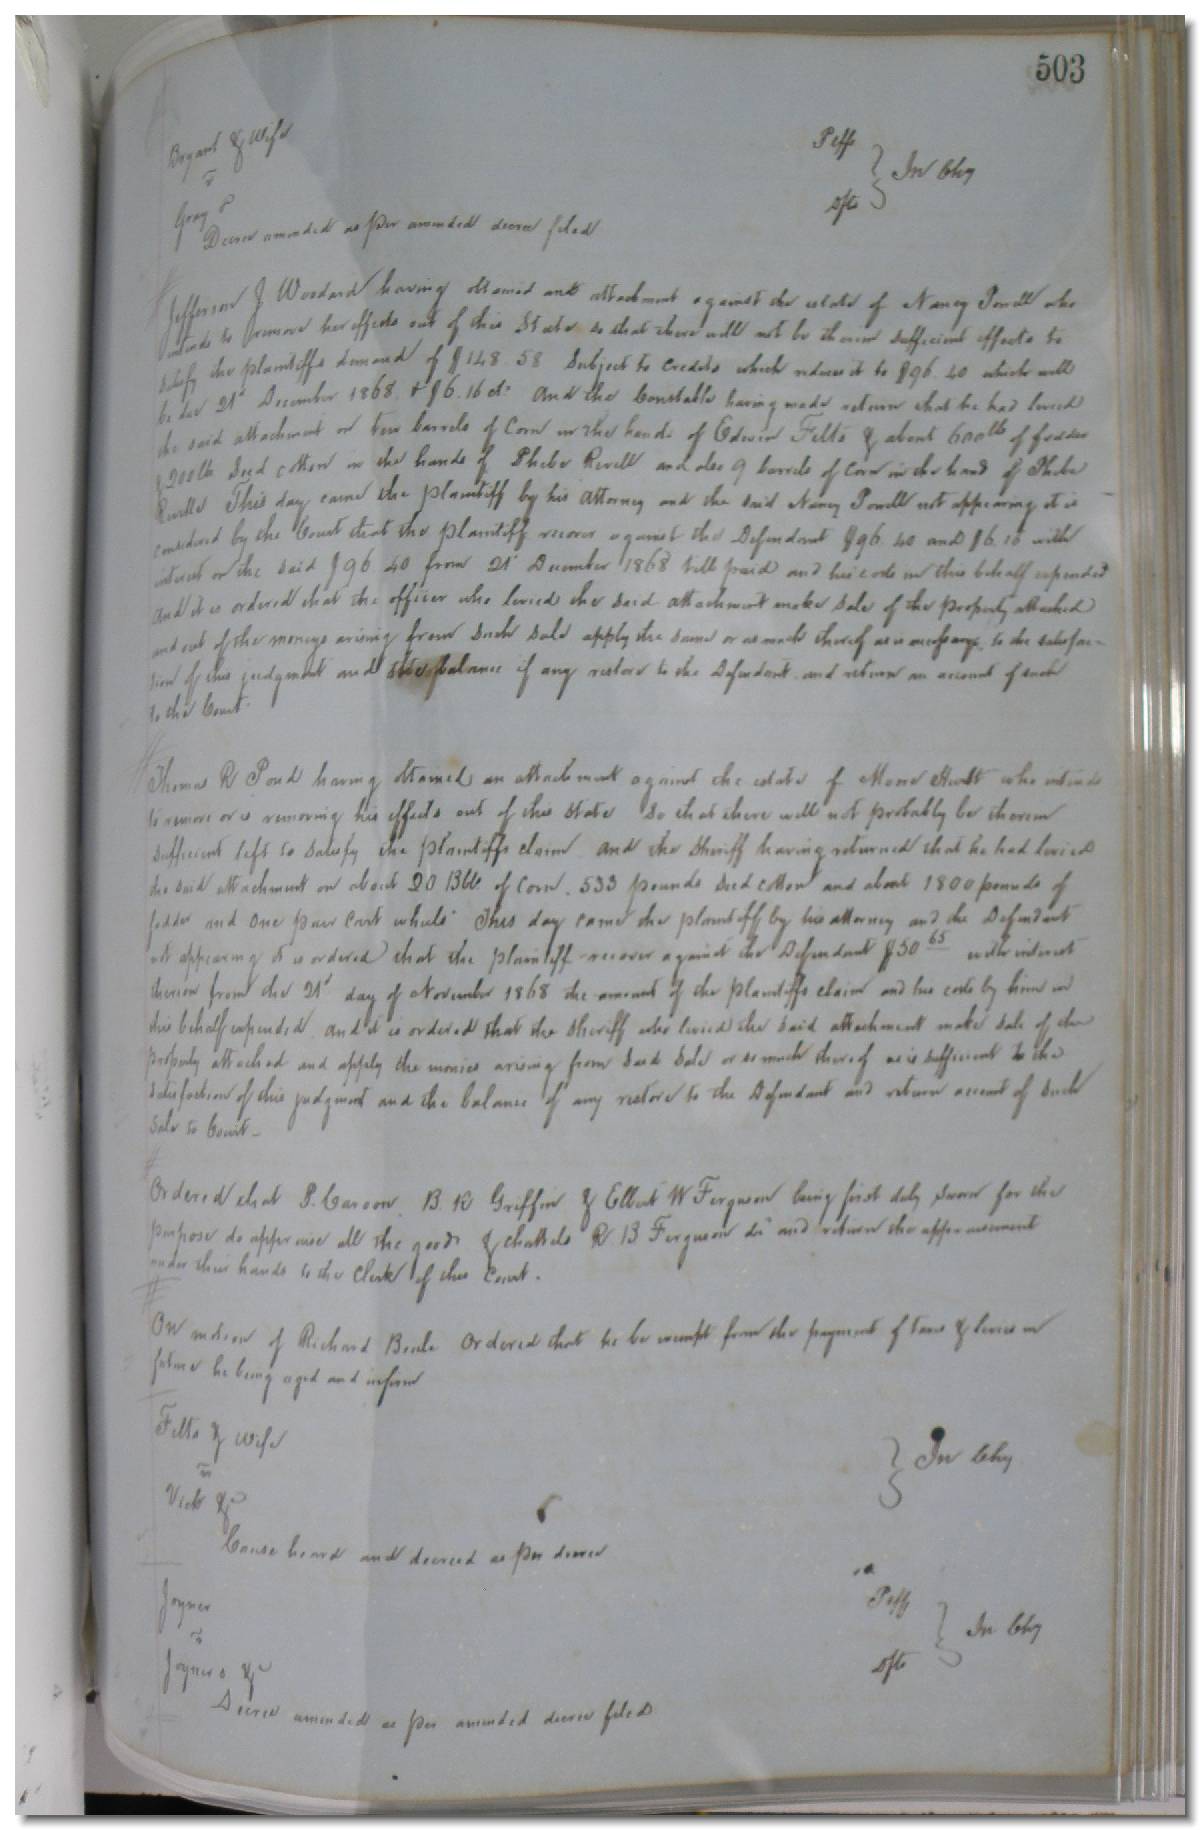 503
Bryant & Wife Plffs
vs } In Chy
Gray & Dfts
Decree amended as per amended decree filed
Jefferson J Woodard having obtained an attachment against the estate of Nancy Powell who
intends to remove her effects out of this State so that there will not be therein sufficient effects to
satisfy the plaintiffs demand of $148.58 Subject to credits which reduces it to $96.40 which will
be due 21st December 1868 & $6.16 cts And the Constable having made return that he had levied
the said attachment on two barrels of Corn in the hands of Edwin Felts & about 600 lbs of fodder
& 200 lbs Seed cotton in the hands of Phebe Revell and also 9 barrels of Corn in the hand of Phebe
Revells This day came the plaintiff by his attorney and the said Nancy Powell not appearing it is
considered by the Court that the plaintiff recover against the Defendant $96.40 and $6.16 with
interest on the said $96.40 from 21st December 1868 till paid and his costs in this behalf expended
And it is ordered that the officer who levied the said attachment make sale of the property attached
and out of the moneys arising from such sale apply the same or as much thereof as is necessary to the satisfac-
tion of this judgment and the balance if any restore to the Defendant and return an account of such
to the Court.
Thomas R Pond having obtained an attachment against the estate of who intends
to remove or is removing his effects out of this State So that there will not probably be therein
sufficient left to satisfy the plaintiffs claim And the Sheriff having returned that he had levied
the said attachment on about 20 Bbls of Corn, 533 pounds seed cotton and about 1800 pounds of
fodder and one pair cart wheels. This day came the plaintiff by his attorney and the Defendant
not appearing it is ordered that the plaintiff recover against the Defendant $50 65 with interest
thereon from the 21st day of November 1868 the amount of the plaintiffs claim and his costs by him in
this behalf expended. and it is ordered that the Sheriff who levied the said attachment make sale of the
property attached and apply the monies arising from said sale or so much thereof as is sufficient to the
satisfaction of this judgment and the balance if any restore to the Defendant and return account of such
Sale to Court.
Ordered that B. K Griffin & Elbert W Ferguson being first duly sworn for the
purpose do appraise all the goods & chattels R B Ferguson dec and return the appraisement
under their hands to the Clerk of this Court.
On motion of Richard Beale Ordered that he be exempt from the payment of taxes & levies in
future he being aged and infirm
Felts & Wife
vs } In Chy
Vick &c
Cause heard and decreed as per decree
Joyner Plff
vs } In Chy
Joyners &c Dfts
Decree amended as per amended decree filed